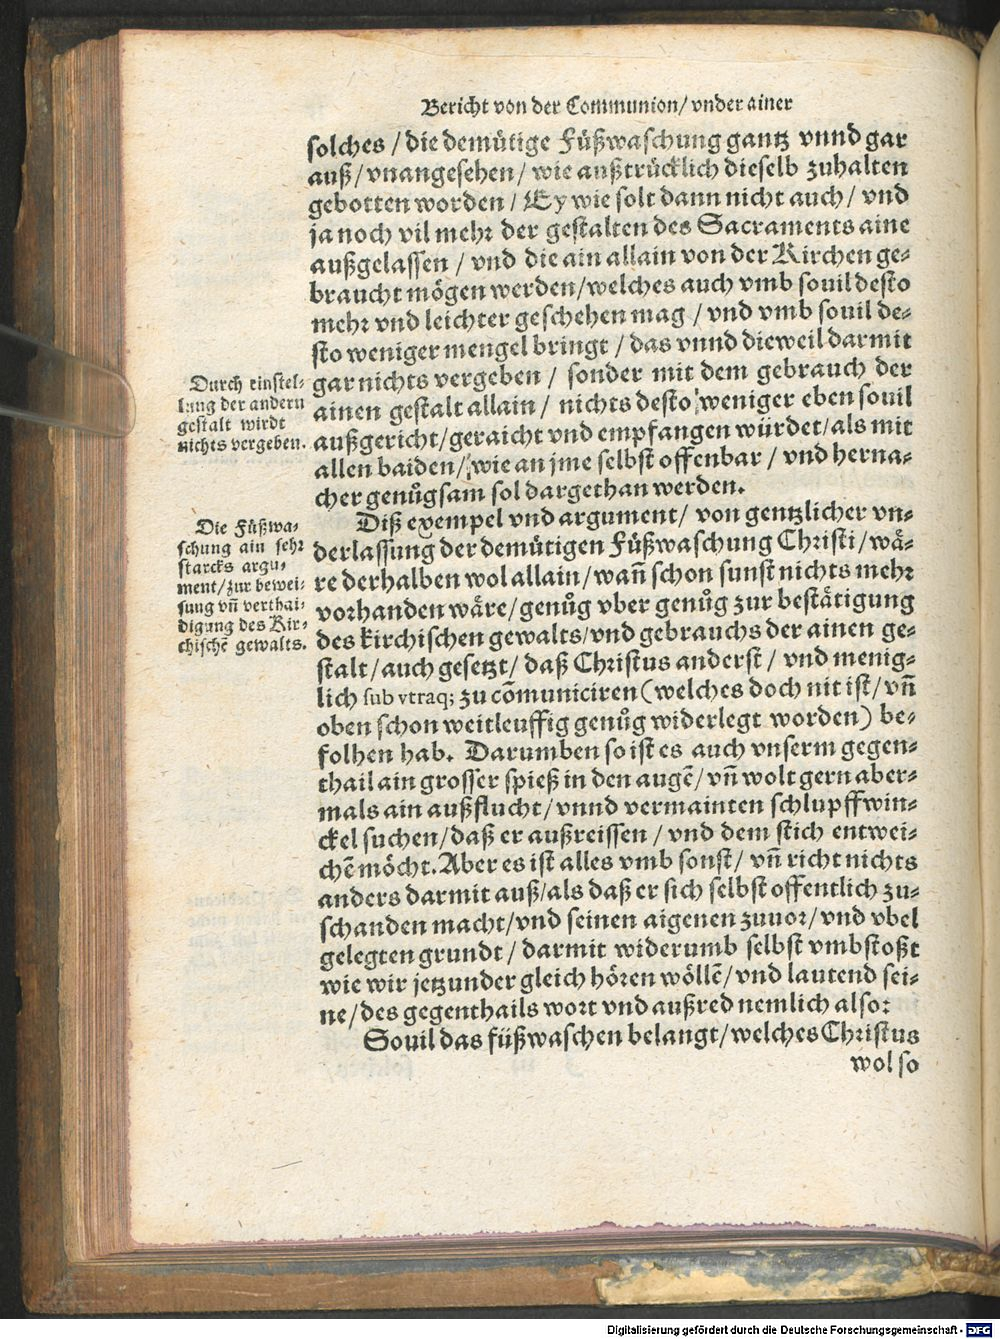 Bericht von der Communion/ vnder ainer
solches / die demütige Füßwaschung gantz vnnd gar
auß/ vnangesehen / wie außtrücklich dieselb zuhalten
gebotten worden / Ey wie solt dann nicht auch/ vnd
ja noch vil mehr der gestalten des Sacraments aine
außgelassen / vnd die ain allain von der Kirchen ge-
braucht mögen werden/welches auch vmb souil desto
mehr vnd leichter geschehen mag / vnd vmb souil de-
sto weniger mengel bringt / das vnnd dieweil darmit
gar nichts vergeben / sonder mit dem gebrauch der
ainen gestalt allain / nichts desto weniger eben souil
außgericht/geraicht vnd empfangen würdet/als mit
allen baiden/ wie an jme selbst offenbar / vnd herna-
cher genůgsam sol dargethan werden.
Durch einstel-
lung der andern
gestalt wirdt
nichts vergeben.
Diß exempel vnd argument/ von gentzlicher vn-
derlassung der demütigen Füßwaschung Christi/wä-
re derhalben wol allain/wañ schon sunst nichts mehr
vorhanden wäre/genůg vber genůg zur bestätigung
des kirchischen gewalts/vnd gebrauchs der ainen ge-
stalt/auch gesetzt/ daß Christus anderst / vnd menig-
lich sub vtraq; zu cõmuniciren (welches doch nit ist/vñ
oben schon weitleuffig genůg widerlegt worden) be-
folhen hab. Darumben so ist es auch vnserm gegen-
thail ain grosser spieß in den augẽ/ vñ wolt gern aber-
mals ain außflucht/vnnd vermainten schlupffwin-
ckel suchen/daß er außreissen / vnd dem stich entwei-
chẽ möcht. Aber es ist alles vmb sonst/ vñ richt nichts
anders darmit auß/als daß er sich selbst offentlich zu-
schanden macht/vnd seinen aigenen zuuor/ vnd vbel
gelegten grundt / darmit widerumb selbst vmbstoßt
wie wir jetzunder gleich hören wöllẽ/ vnd lautend sei-
ne/des gegenthails wort vnd außred nemlich also:
Die Füßwa-
schung ain sehr
starcks argu-
ment/zur bewei-
sung vñ verthai-
digung des Kir-
chischẽ gewalts.
Souil das füßwaschen belangt/welches Christus
wol so
Digitalisierung gefördert durch die Deutsche Forschungsgemeinschaft - DFG